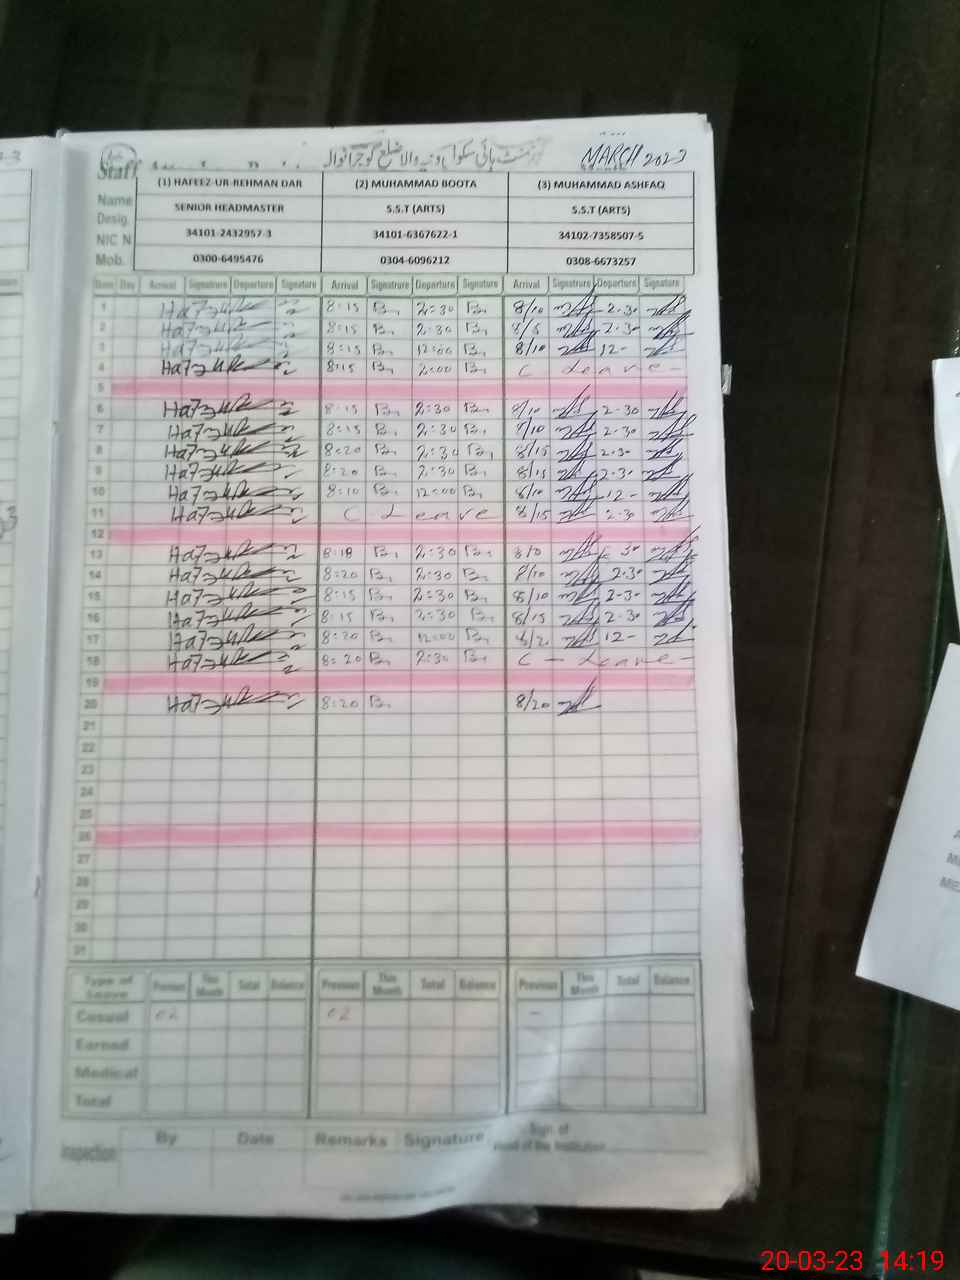 Staff گورنمنٹ ہائی سکول ونیہ والا ضلع گوجرانوالہ MARCH 2023
(1) HAFEEZ-UR-REHMAN DAR (2) MUHAMMAD BOOTA (3) MUHAMMAD ASHFAQ
Name
SENIOR HEADMASTER S.S.T (ARTS) S.S.T (ARTS)
Desig.
NIC N 34101-2432957-3 34101-6367622-1 34102-7358507-5
Mob. 0300-6495476 0304-6096212 0308-6673257
Date Day Arrival Signatrure Departure Signature Arrival Signatrure Departure Signature Arrival Signatrure Departure Signature
1 8:15 2:30 8/10 2.30
2 8:15 2:30 8/5 2.30
3 8:15 12:00 8/10 12-
4 8:15 2:00 C Leave-
5
6 8:15 2:30 8/10 2-30
7 8:15 2:30 8/10 2-30
8 8:20 2:30 8/15 2.30
9 8:20 2:30 8/15 2.30
10 8:10 12:00 8/10 12-
11 C Leave 8/15 2.30
12
13 8:18 2:30 30
14 8:20 2:30 8/10 2.30
15 8:15 2:30 8/10 2-30
16 8:15 2:30 8/15 2-30
17 8:20 12:00 8/20 12-
18 8:20 2:30 C - Leave-
19
20 8:20 8/20
21
22
23
24
25
26
27
28
29
30
31
Type of Leave Previous This Month Total Balance Previous This Month Total Balance Previous This Month Total Balance
Casual 02 02 -
Earned
Medical
Total
Inspection By Date Remarks Signature Sign. of
Head of the Institution
20-03-23 14:19